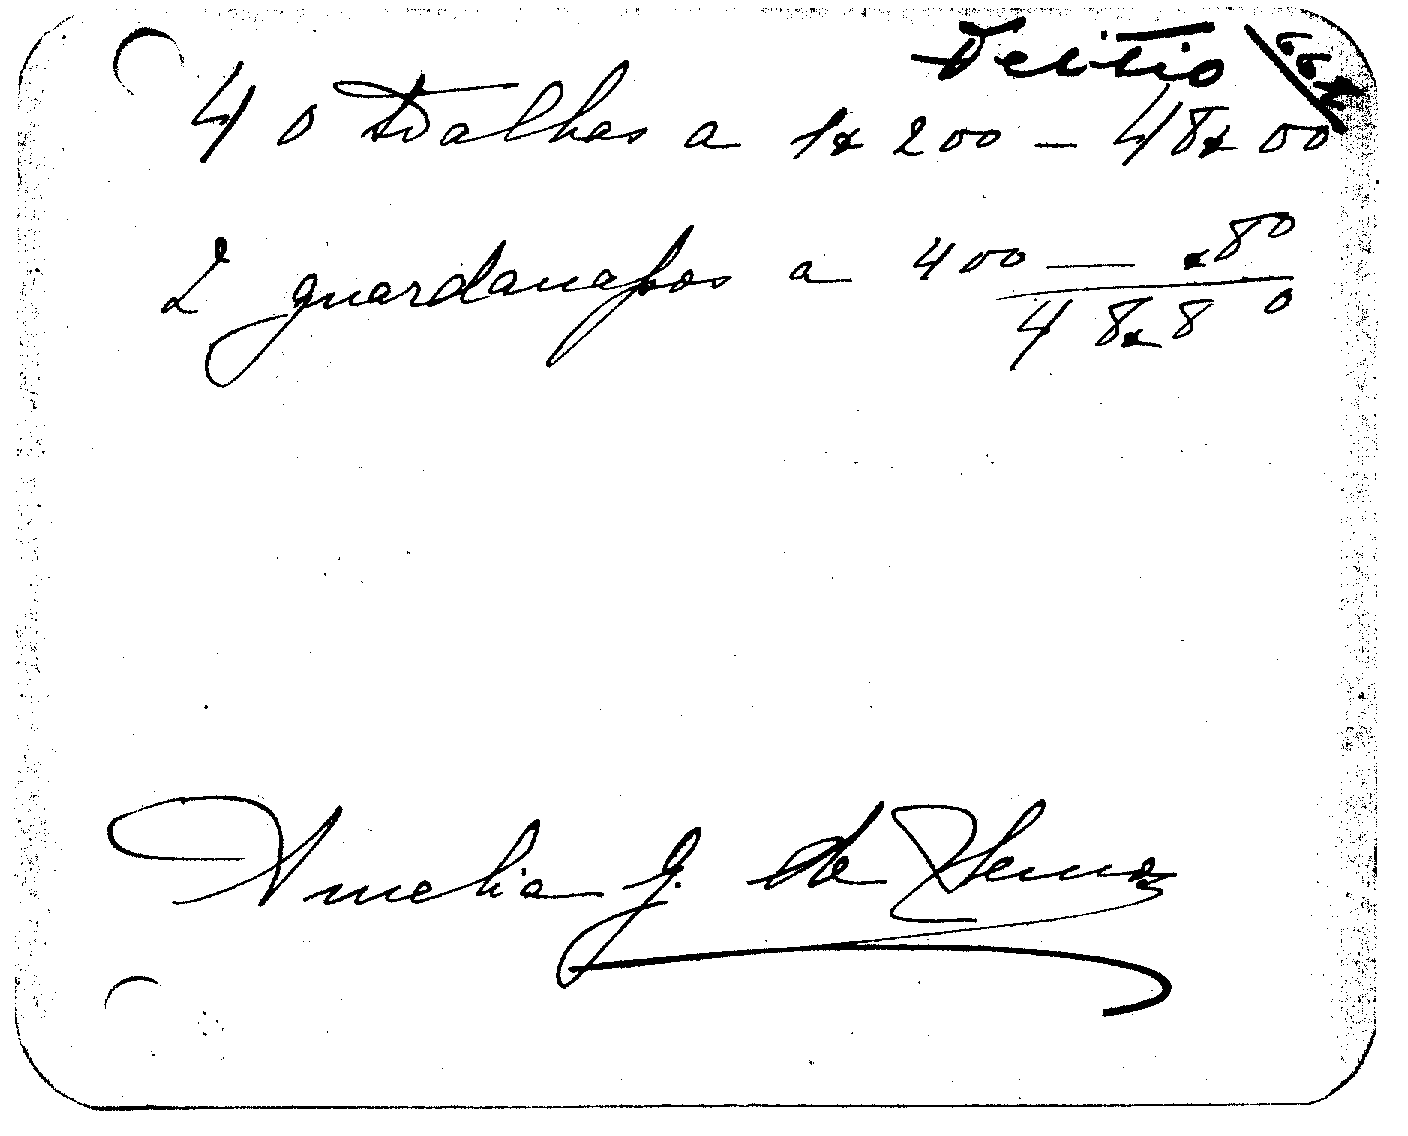 Delitio 664
40 Toalhas a 1$200 — 48$00
2 guardanapos a 400 — $80
48$80
Amelia J. de